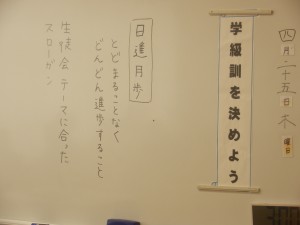 四月二十五日木曜日
学級訓を決めよう
日進月歩
とどまることなく
どんどん進歩すること
生徒会テーマに合った
スローガン